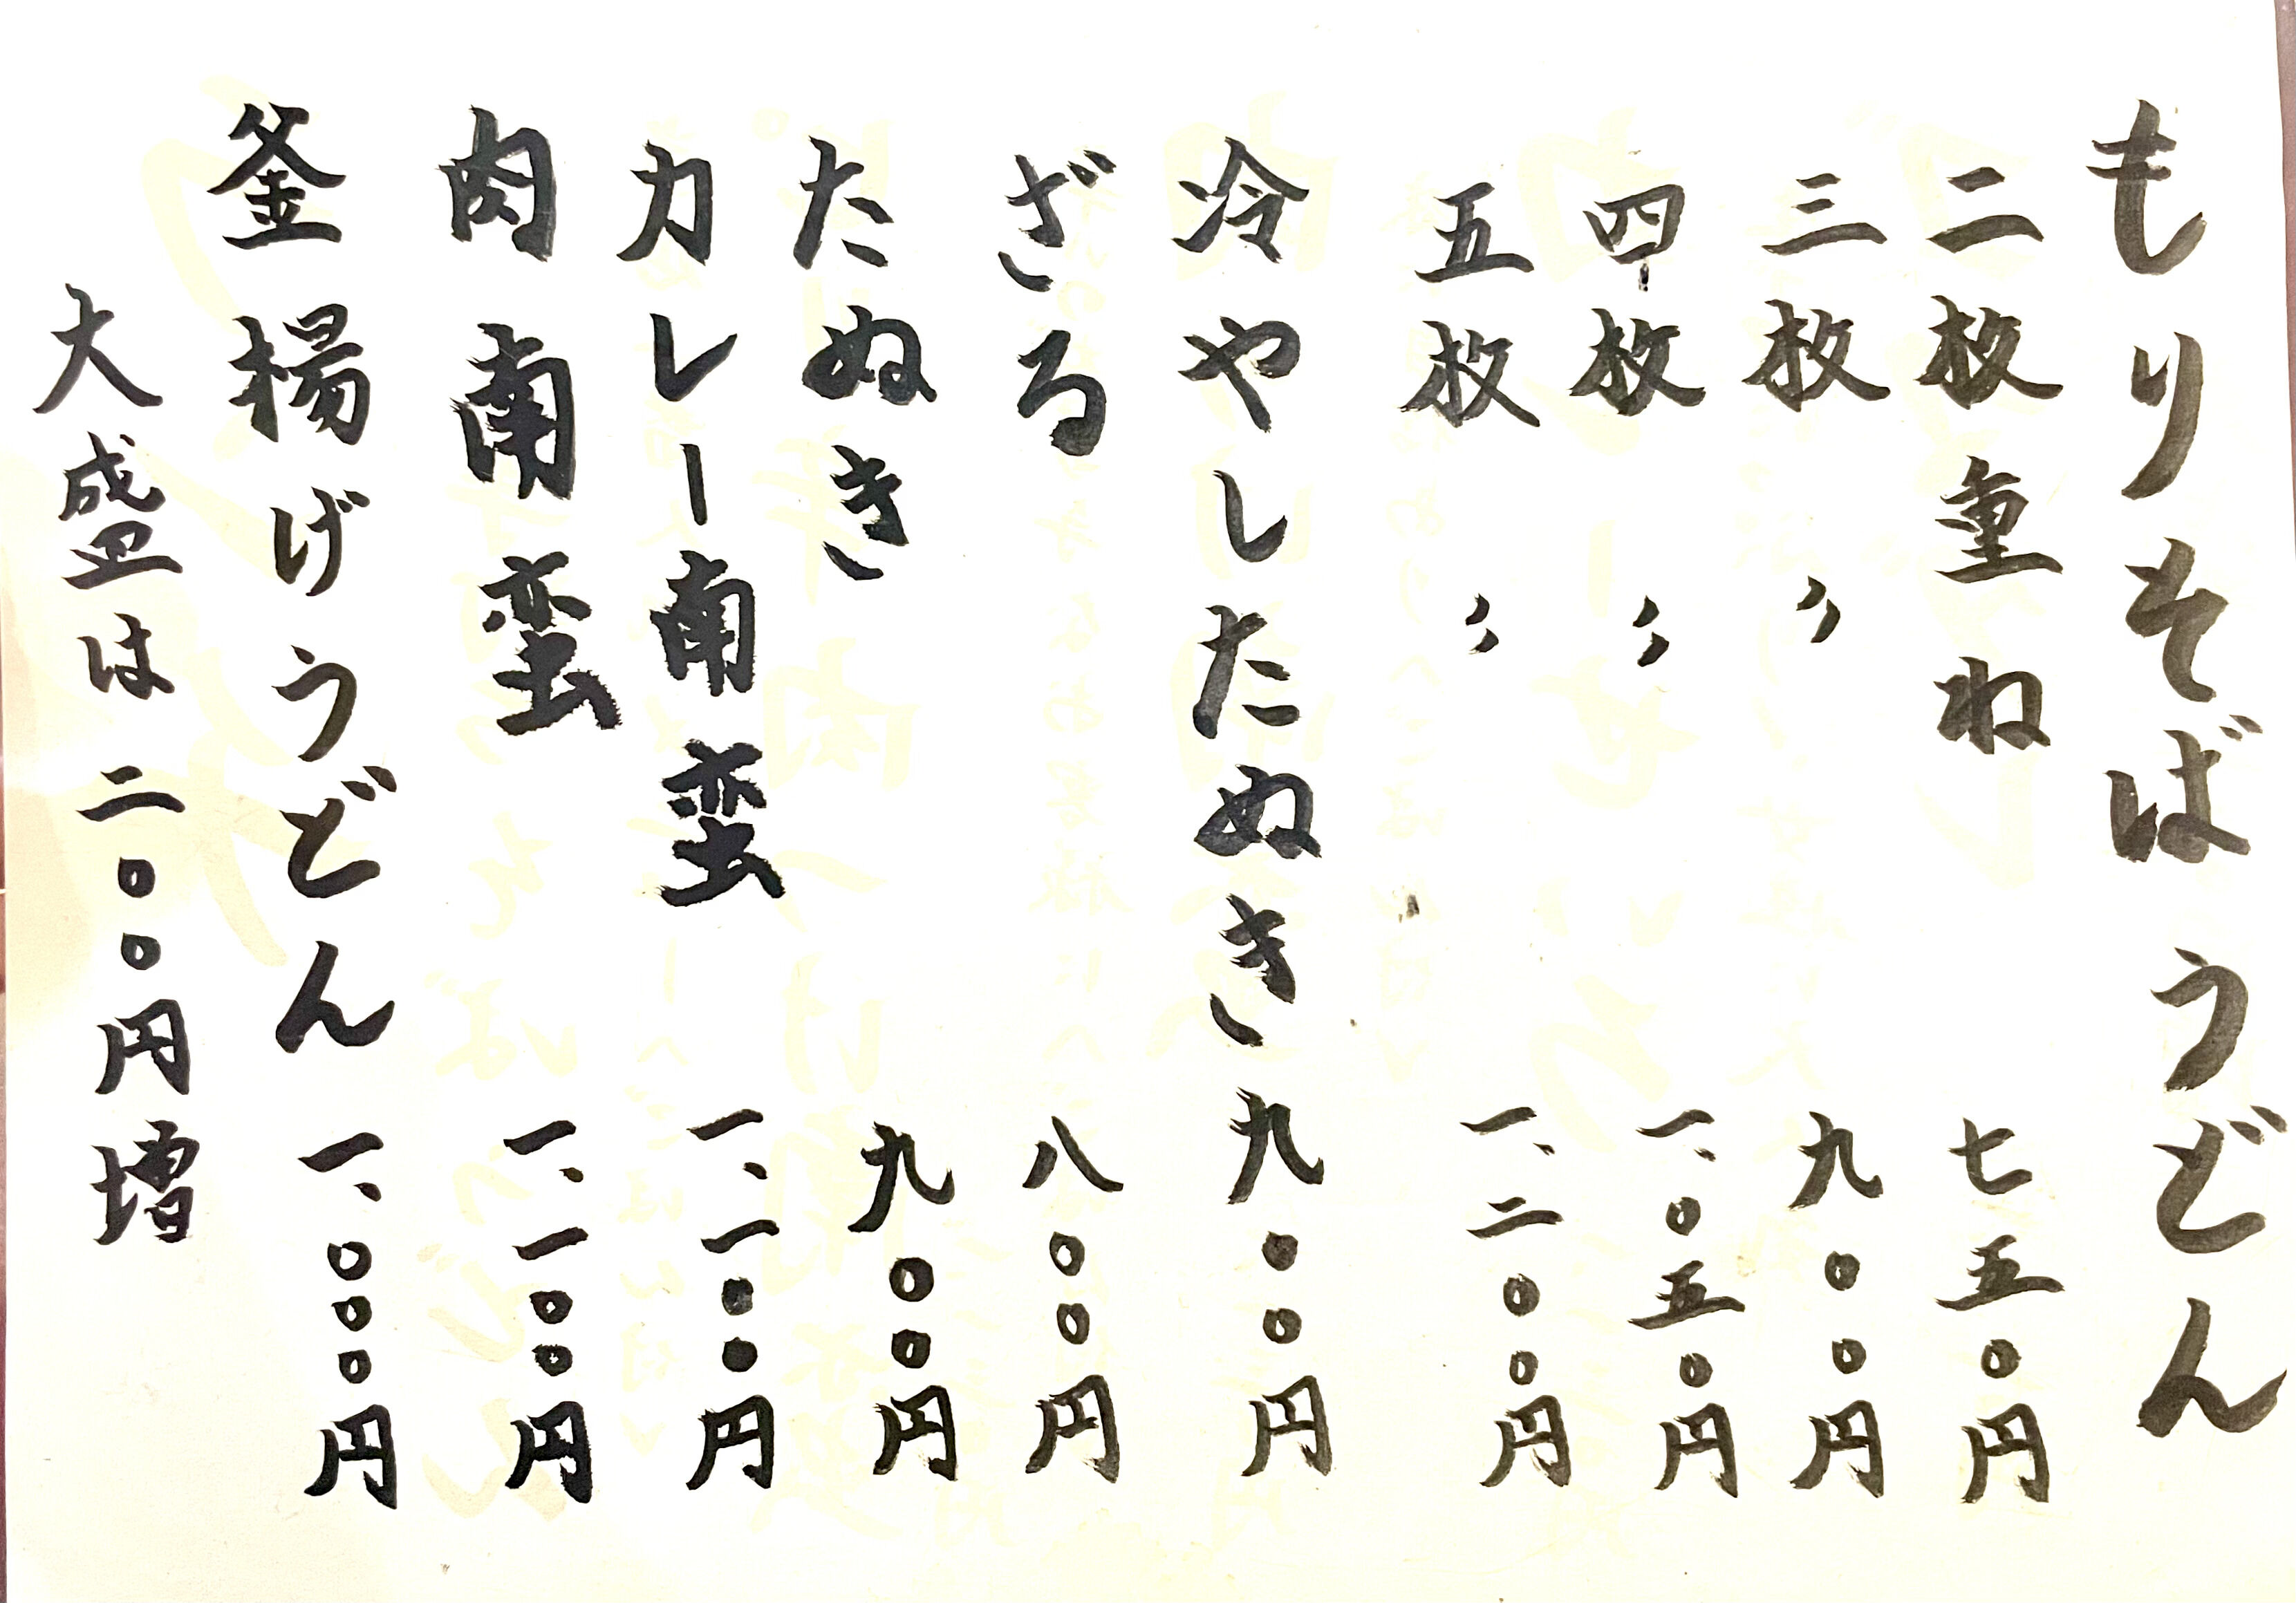 もりそば うどん
二枚重ね 七五〇円
三枚 〃 九〇〇円
四枚 〃 一、〇五〇円
五枚 〃 一、二〇〇円
冷やしたぬき 九〇〇円
ざる 八〇〇円
たぬき 九〇〇円
カレー南蛮 一、一〇〇円
肉南蛮 一、一〇〇円
釜揚げうどん 一、〇〇〇円
大盛は二〇〇円増